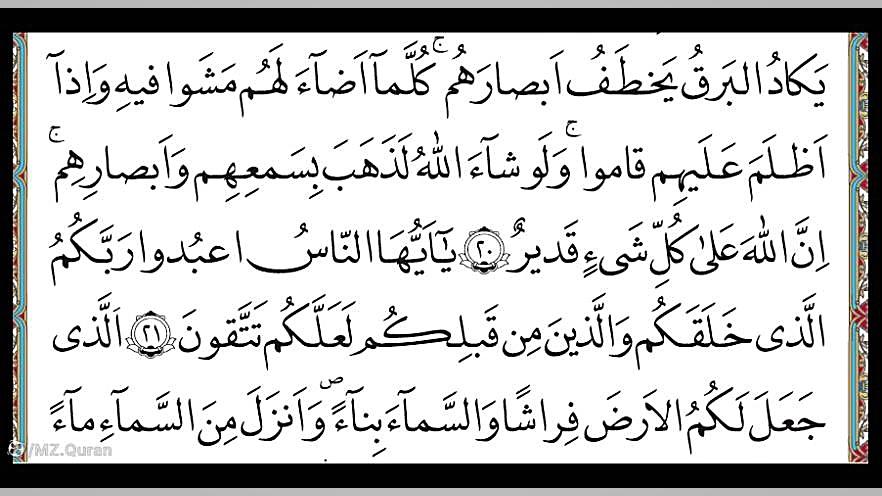 يَكادُ البَرقُ يَخطَفُ اَبصارَهُم ۚ كُلَّمآ اَضآءَ لَهُم مَشَوا فيهِ وَاِذآ
اَظلَمَ عَلَيهِم قاموا ۚ وَلَو شآءَ اللّٰهُ لَذَهَبَ بِسَمعِهِم وَاَبصارِهِم ۚ
اِنَّ اللّٰهَ عَلىٰ كُلِّ شَیءٍ قَديرٌ ٢٠ يٰآاَيُّهَا النّاسُ اعبُدوا رَبَّكُمُ
الَّذی خَلَقَكُم وَالَّذينَ مِن قَبلِكُم لَعَلَّكُم تَتَّقونَ ٢١ اَلَّذی
جَعَلَ لَكُمُ الاَرضَ فِراشًا وَالسَّمآءَ بِنآءً ۖ وَاَنزَلَ مِنَ السَّمآءِ مآءً
/MZ.Quran